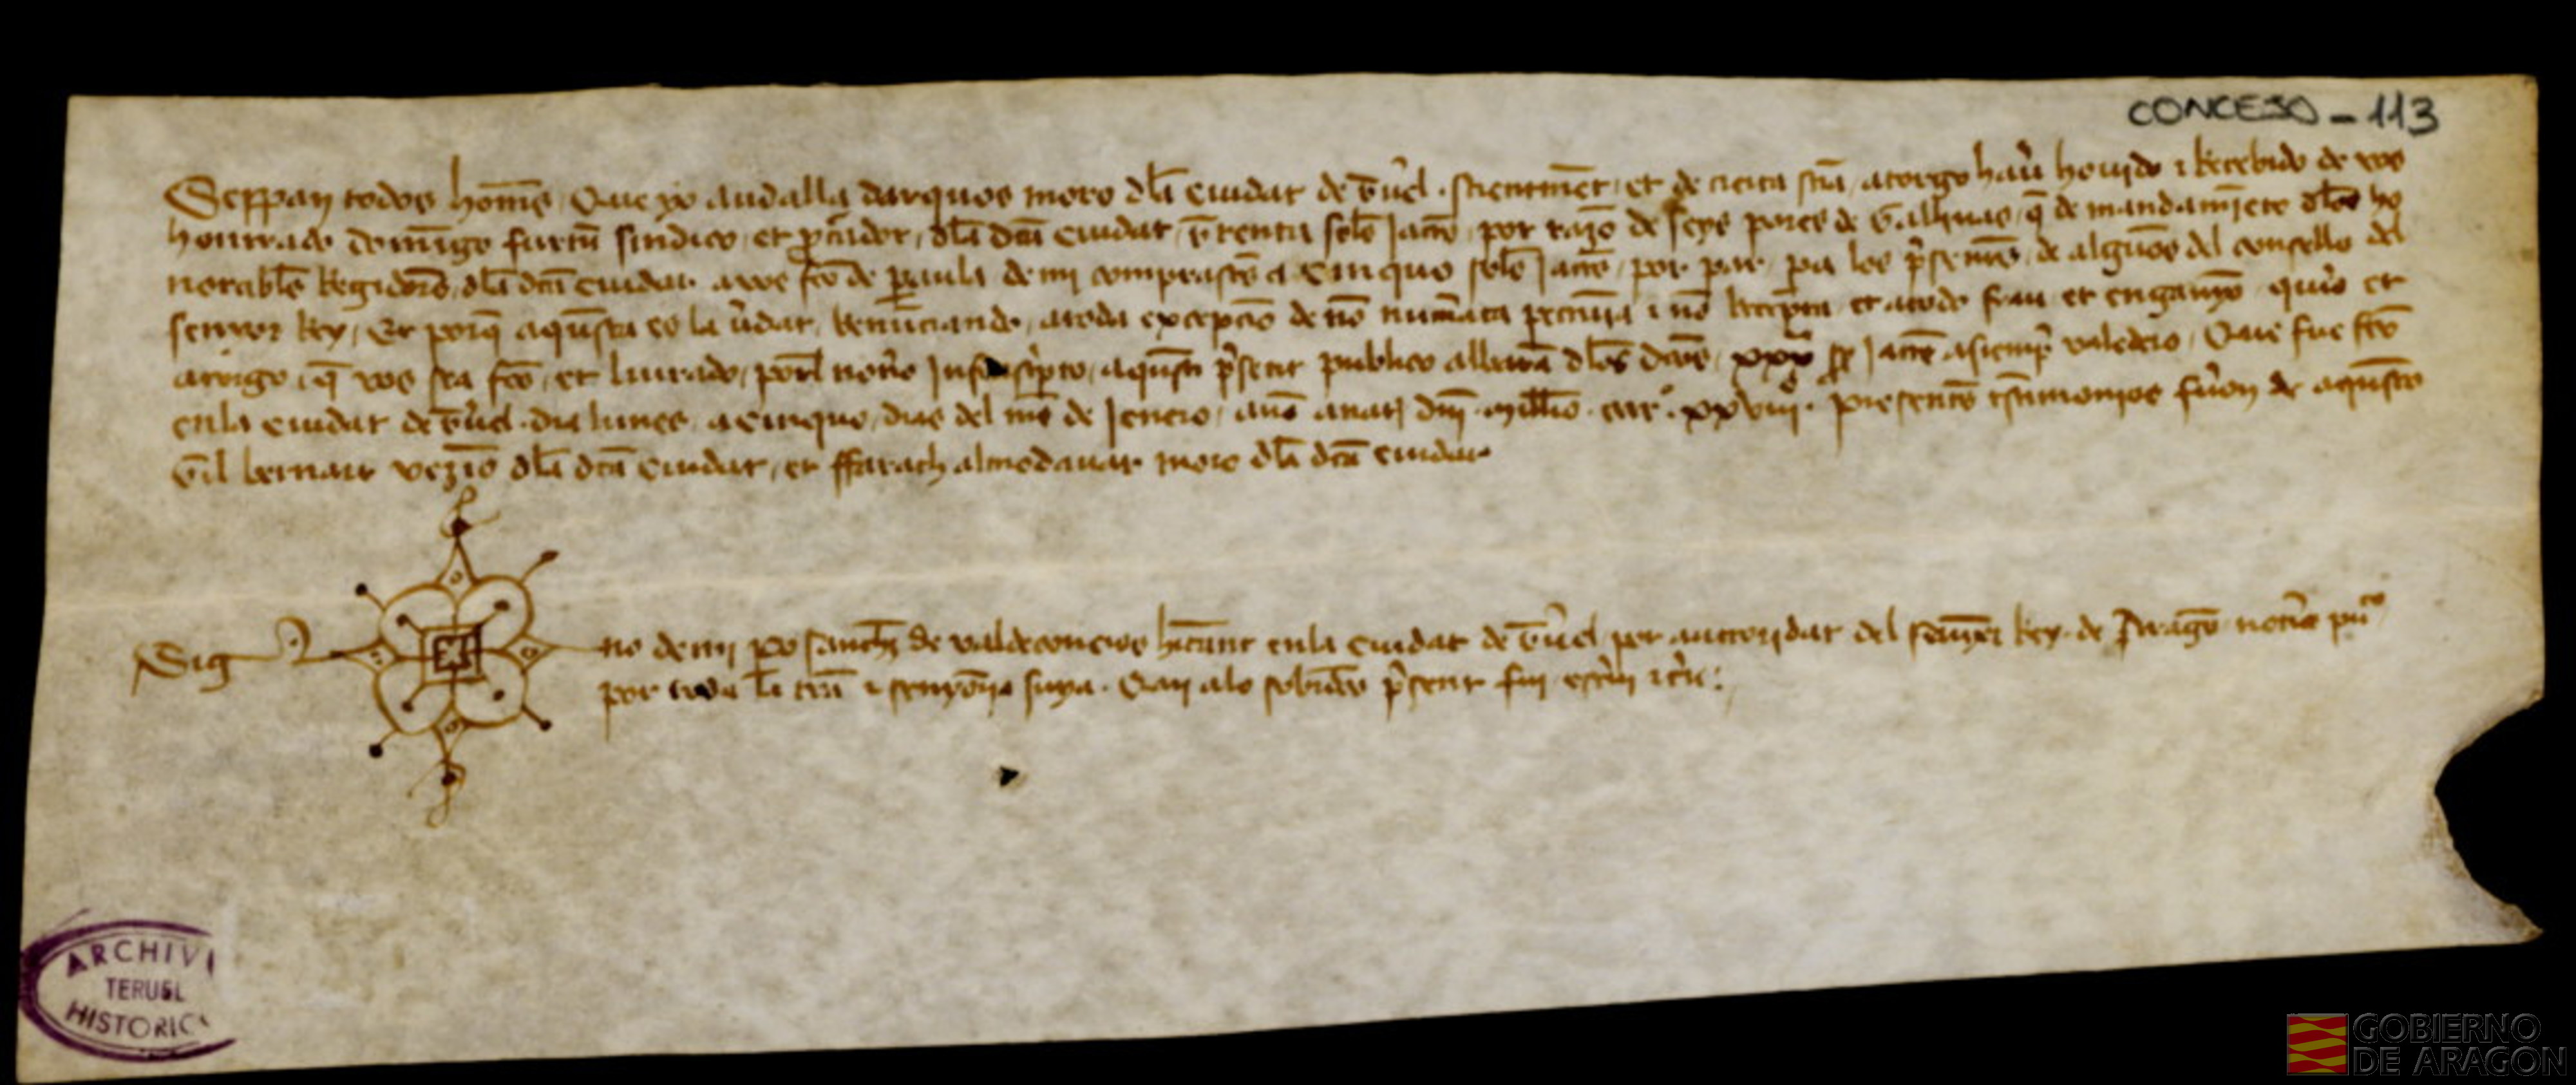 CONCEJO - 113
Seppan todos hom̄es Que yo audalla darquos moro dl̄a Ciudat de t̄uel . scientmēt et de cierta sc̄ia atorgo hau̓ houido ⁊ Recebido de vos
honrrado domīgo fuertū sindico et p̄curador dl̄a dc̄a Ciudat t̄renta sol̄s Jacc̄s por razō de seys pares de Gallinas q̄ de mandamīeto dl̄os ho
norabl̄s Regidor̄s dl̄a dc̄a Ciudat a vos de paula de mi comprastes a Cinquo sol̄s Jacc̄s por par pa los p̄sentes de algūos del consello del
senyor Rey Et porq̄ aq̄sta es la u̓dat Renūciando a toda excepciō de nō num̄ata pecunia ⁊ nō Recepta et a todo frau et enganyo quiero et
atorgo q̄ vos sea fc̄o et liurado porl not̓io Infrascripto aq̄sti p̄sent publico albarā dl̄os dc̄os xxx ss Jacc̄s a siemp̄ valedero Que fue fc̄o
en la Ciudat de t̄uel dia lunes a Cinquo dias del mes de Jenero año a nat̄ dn̄i mill̄io cccº xxviiiº presentes testimonios fuero̅n de aq̄sto
Gil bernart vezīo dl̄a dc̄a Ciudat et ffarach almodauar moro dl̄a dc̄a Ciudat
Sig no de mi po sanchz de valdeconeios hītant en la Ciudat de t̄uel por auctoridat del senyor Rey de Aragō not̓io pūco
por toda la trr̄a ⁊ senyoria suya . Qui a lo sobrd̄co p̄sent fui escriu̓i
ARCHIV
TERUEL
HISTORIC
GOBIERNO
DE ARAGON